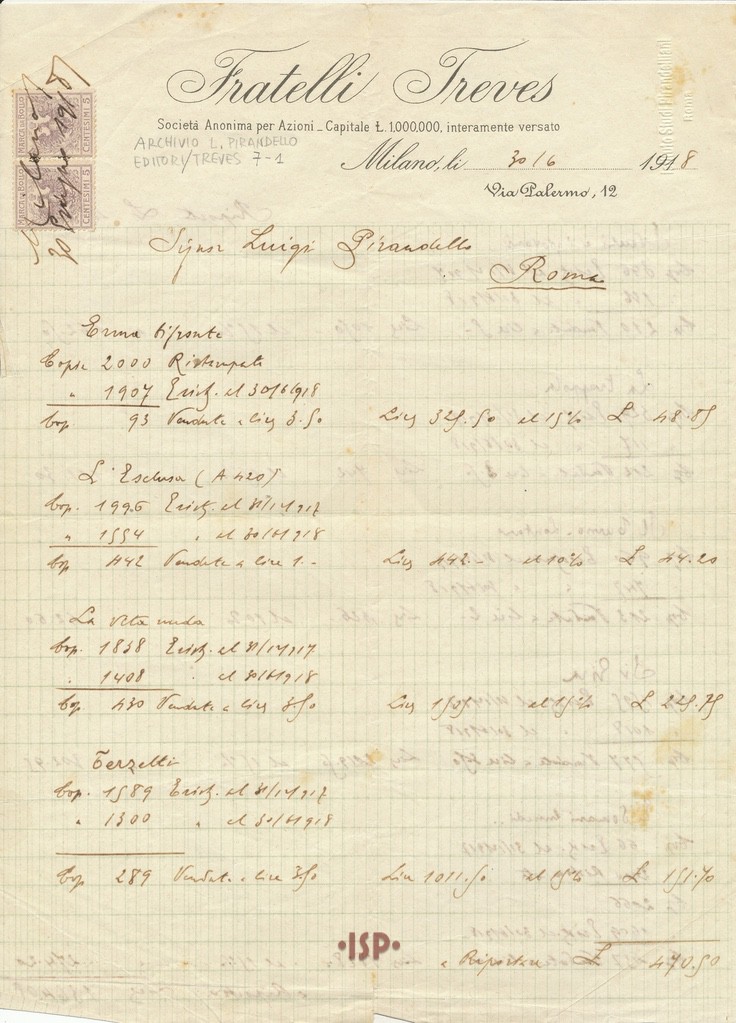 Fratelli Treves
Società Anonima per Azioni _ Capitale Ł. 1.000,000, interamente versato
ARCHIVIO L. PIRANDELLO
EDITORI/TREVES 7-1
Milano, li 30/6 1918
Via Palermo, 12
MARCA DA BOLLO CENTESIMI 5
MARCA DA BOLLO CENTESIMI 5
Milano
30 Giugno 1918
Signor Luigi Pirandello
Roma
Erma bifronte
Copie 2000 Ristampate
" 1907 Esist. al 30/6/918
Cop 93 Vendute a lire 3.50 Lire 325.50 al 15% L 48.85
L'Esclusa (A 420)
Cop. 1996 Esist. al 31/12/917
" 1554 " al 30/6/1918
Cop 442 Vendute a lire 1.- Lire 442.- al 10% L 44.20
La vita nuda
Cop. 1838 Esist. al 31/12/917
" 1408 " al 30/6/1918
Cop 430 Vendute a lire 3.50 Lire 1505 al 15% L 225.75
Terzetti
Cop. 1589 Esist. al 31/12/917
" 1300 " al 30/6/1918
Cop 289 Vendute a lire 3.50 Lire 1011.50 al 15% L 151.70
•ISP•
a Riportare L 470.50